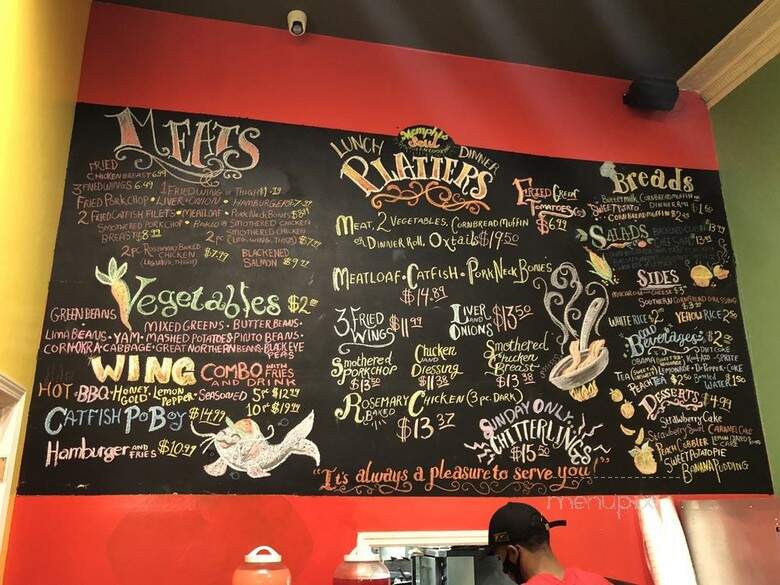 MEATS
FRIED
CHICKEN BREAST 6.99
3 FRIED WINGS 6.49 1 FRIED WING OR THIGH
FRIED PORK CHOP • LIVER & ONION • HAMBURGER
2 FRIED CATFISH FILETS • MEATLOAF • PORK NECK BONES
SMOTHERED PORKCHOP • BAKED OR SMOTHERED CHICKEN
BREAST 8.99
2 PC SMOTHERED CHICKEN
(LEG, WING, THIGH)
2 PC ROSEMARY BAKED
CHICKEN $7.99
(LEG, WING, THIGH)
BLACKENED
SALMON
Vegetables $2
GREEN BEANS
MIXED GREENS • BUTTER BEANS •
LIMA BEANS • YAM • MASHED POTATOES • PINTO BEANS •
CORN • OKRA • CABBAGE • GREAT NORTHERN BEANS • BLACKEYE
PEAS
WING COMBO WITH FRIES
AND DRINK
HOT • BBQ • HONEY GOLD • LEMON PEPPER • SEASONED 5pc $12.99
10pc $19.99
CATFISH PoBOY $14.99
Hamburger AND FRIES $10.99
Memphis
Soul
LUNCH DINNER
PLATTERS
MEAT, 2 VEGETABLES, CORNBREAD MUFFIN
OR DINNER ROLL, OXtails $19.50
MEATLOAF • CATFISH • PORK NECK BONES
$14.89
3 FRIED
WINGS $11.99
LIVER AND
ONIONS $13.50
Smothered
PORKCHOP
$13.50
Chicken
AND
Dressing
$11.38
Smothered
Chicken
Breast
$13.38
ROSEMARY CHICKEN (3 pc. DARK)
BAKED
$13.37
SUNDAY ONLY
CHITTERLINGS
$15.50
"It's always a pleasure to serve you!"
FRIED GREEN
TOMATOES
$6.99
Breads
Buttermilk, CORNBREAD MUFFIN OR
DINNER ROLL
SWEET POTATO
CORNBREAD MUFFIN $2
SALADS
SIDES
MACARONI & CHEESE
SOUTHERN CORNBREAD DRESSING
WHITE RICE $2 YELLOW RICE
Beverages $2
SPRITE
LEMONADE • DR. PEPPER • COKE
PEACH TEA $2.50 WATER
DESSERTS $4.99
Strawberry Cake
CARAMEL CAKE
PEACH COBBLER
SWEET POTATO PIE
BANANA PUDDING
menupix